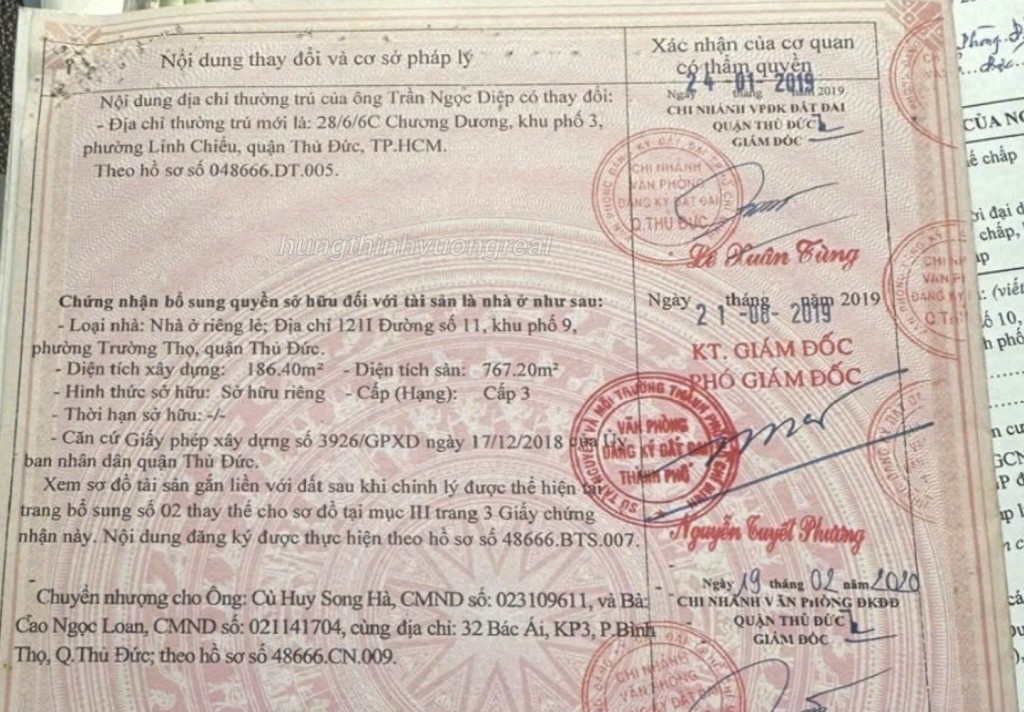 Nội dung thay đổi và cơ sở pháp lý
Xác nhận của cơ quan
có thẩm quyền
Nội dung địa chỉ thường trú của ông Trần Ngọc Diệp có thay đổi:
- Địa chỉ thường trú mới là: 28/6/6C Chương Dương, khu phố 3,
phường Linh Chiểu, quận Thủ Đức, TP.HCM.
Theo hồ sơ số 048666.DT.005.
Ngày 24 tháng 01 năm 2019
CHI NHÁNH VPĐK ĐẤT ĐAI
QUẬN THỦ ĐỨC
GIÁM ĐỐC
CHI NHÁNH
VĂN PHÒNG
ĐĂNG KÝ ĐẤT ĐAI
Q.THỦ ĐỨC
Lê Xuân Tùng
hungthinhvuongreal
Chứng nhận bổ sung quyền sở hữu đối với tài sản là nhà ở như sau:
- Loại nhà: Nhà ở riêng lẻ; Địa chỉ 121I Đường số 11, khu phố 9,
phường Trường Thọ, quận Thủ Đức.
- Diện tích xây dựng: 186.40m² - Diện tích sàn: 767.20m²
- Hình thức sở hữu: Sở hữu riêng - Cấp (Hạng): Cấp 3
- Thời hạn sở hữu: -/-
- Căn cứ Giấy phép xây dựng số 3926/GPXD ngày 17/12/2018 của Ủy
ban nhân dân quận Thủ Đức.
Xem sơ đồ tài sản gắn liền với đất sau khi chỉnh lý được thể hiện tại
trang bổ sung số 02 thay thế cho sơ đồ tại mục III trang 3 Giấy chứng
nhận này. Nội dung đăng ký được thực hiện theo hồ sơ số 48666.BTS.007.
Ngày 21 tháng -08- năm 2019
KT. GIÁM ĐỐC
PHÓ GIÁM ĐỐC
VĂN PHÒNG
ĐĂNG KÝ ĐẤT ĐAI
THÀNH PHỐ
Nguyễn Tuyết Phương
Chuyển nhượng cho Ông: Cù Huy Song Hà, CMND số: 023109611, và Bà:
Cao Ngọc Loan, CMND số: 021141704, cùng địa chỉ: 32 Bác Ái, KP3, P.Bình
Thọ, Q.Thủ Đức; theo hồ sơ số 48666.CN.009.
Ngày 19 tháng 02 năm 2020
CHI NHÁNH VĂN PHÒNG ĐKĐĐ
QUẬN THỦ ĐỨC
GIÁM ĐỐC
CHI NHÁNH
VĂN PHÒNG